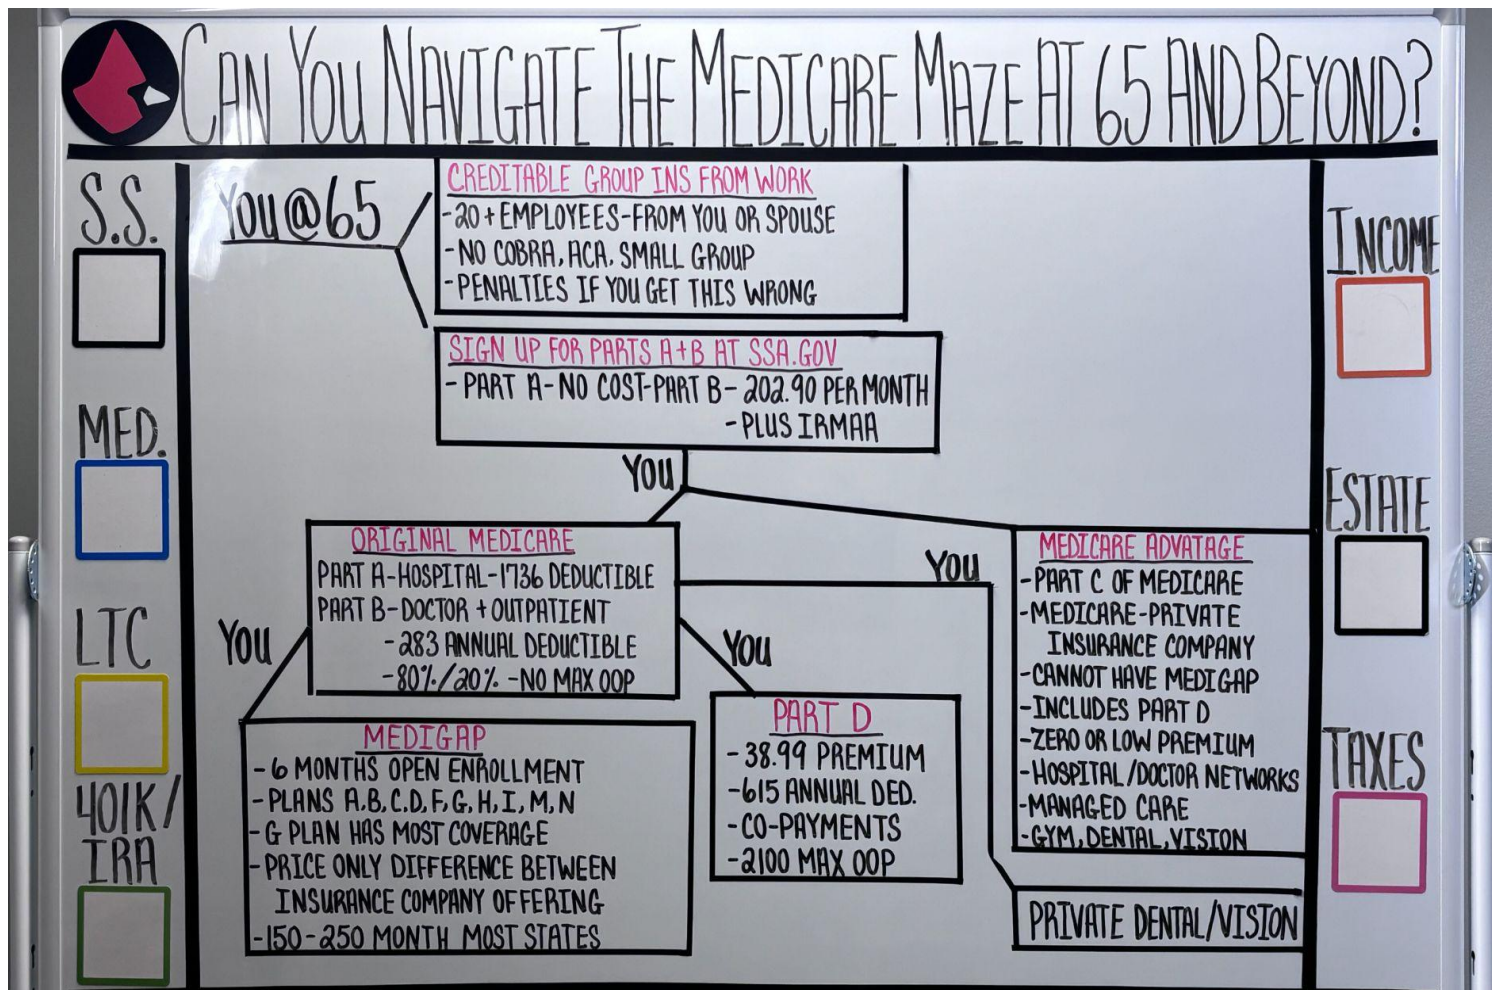 CAN YOU NAVIGATE THE MEDICARE MAZE AT 65 AND BEYOND?
S.S.
MED.
LTC
401K/
IRA
YOU@65
CREDITABLE GROUP INS FROM WORK
-20+EMPLOYEES-FROM YOU OR SPOUSE
-NO COBRA, ACA, SMALL GROUP
-PENALTIES IF YOU GET THIS WRONG
SIGN UP FOR PARTS A+B AT SSA.GOV
-PART A-NO COST-PART B-202.90 PER MONTH
-PLUS IRMAA
YOU
ORIGINAL MEDICARE
PART A-HOSPITAL-1736 DEDUCTIBLE
PART B-DOCTOR + OUTPATIENT
-283 ANNUAL DEDUCTIBLE
-80%/20% -NO MAX OOP
YOU
MEDIGAP
-6 MONTHS OPEN ENROLLMENT
-PLANS A,B,C,D,F,G,H,I,M,N
-G PLAN HAS MOST COVERAGE
-PRICE ONLY DIFFERENCE BETWEEN
INSURANCE COMPANY OFFERING
-150-250 MONTH MOST STATES
YOU
PART D
-38.99 PREMIUM
-615 ANNUAL DED.
-CO-PAYMENTS
-2100 MAX OOP
YOU
MEDICARE ADVATAGE
-PART C OF MEDICARE
-MEDICARE-PRIVATE
INSURANCE COMPANY
-CANNOT HAVE MEDIGAP
-INCLUDES PART D
-ZERO OR LOW PREMIUM
-HOSPITAL/DOCTOR NETWORKS
-MANAGED CARE
-GYM, DENTAL, VISION
PRIVATE DENTAL/VISION
INCOME
ESTATE
TAXES